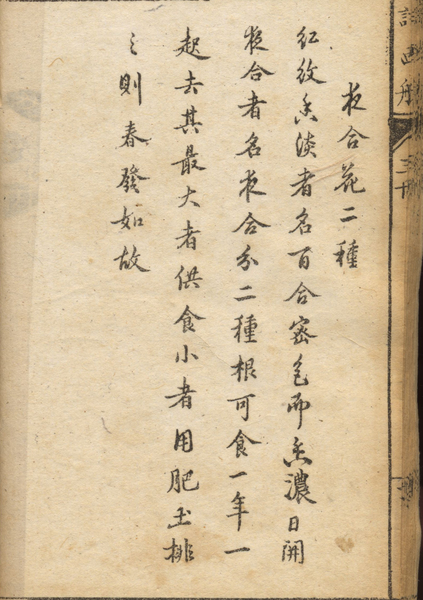 詩画舫
夜合花二種
紅紋香淡者名百合密色而香濃日開
夜合者名夜合分二種根可食一年一
起去其最大者供食小者用肥土排
之則春發如故